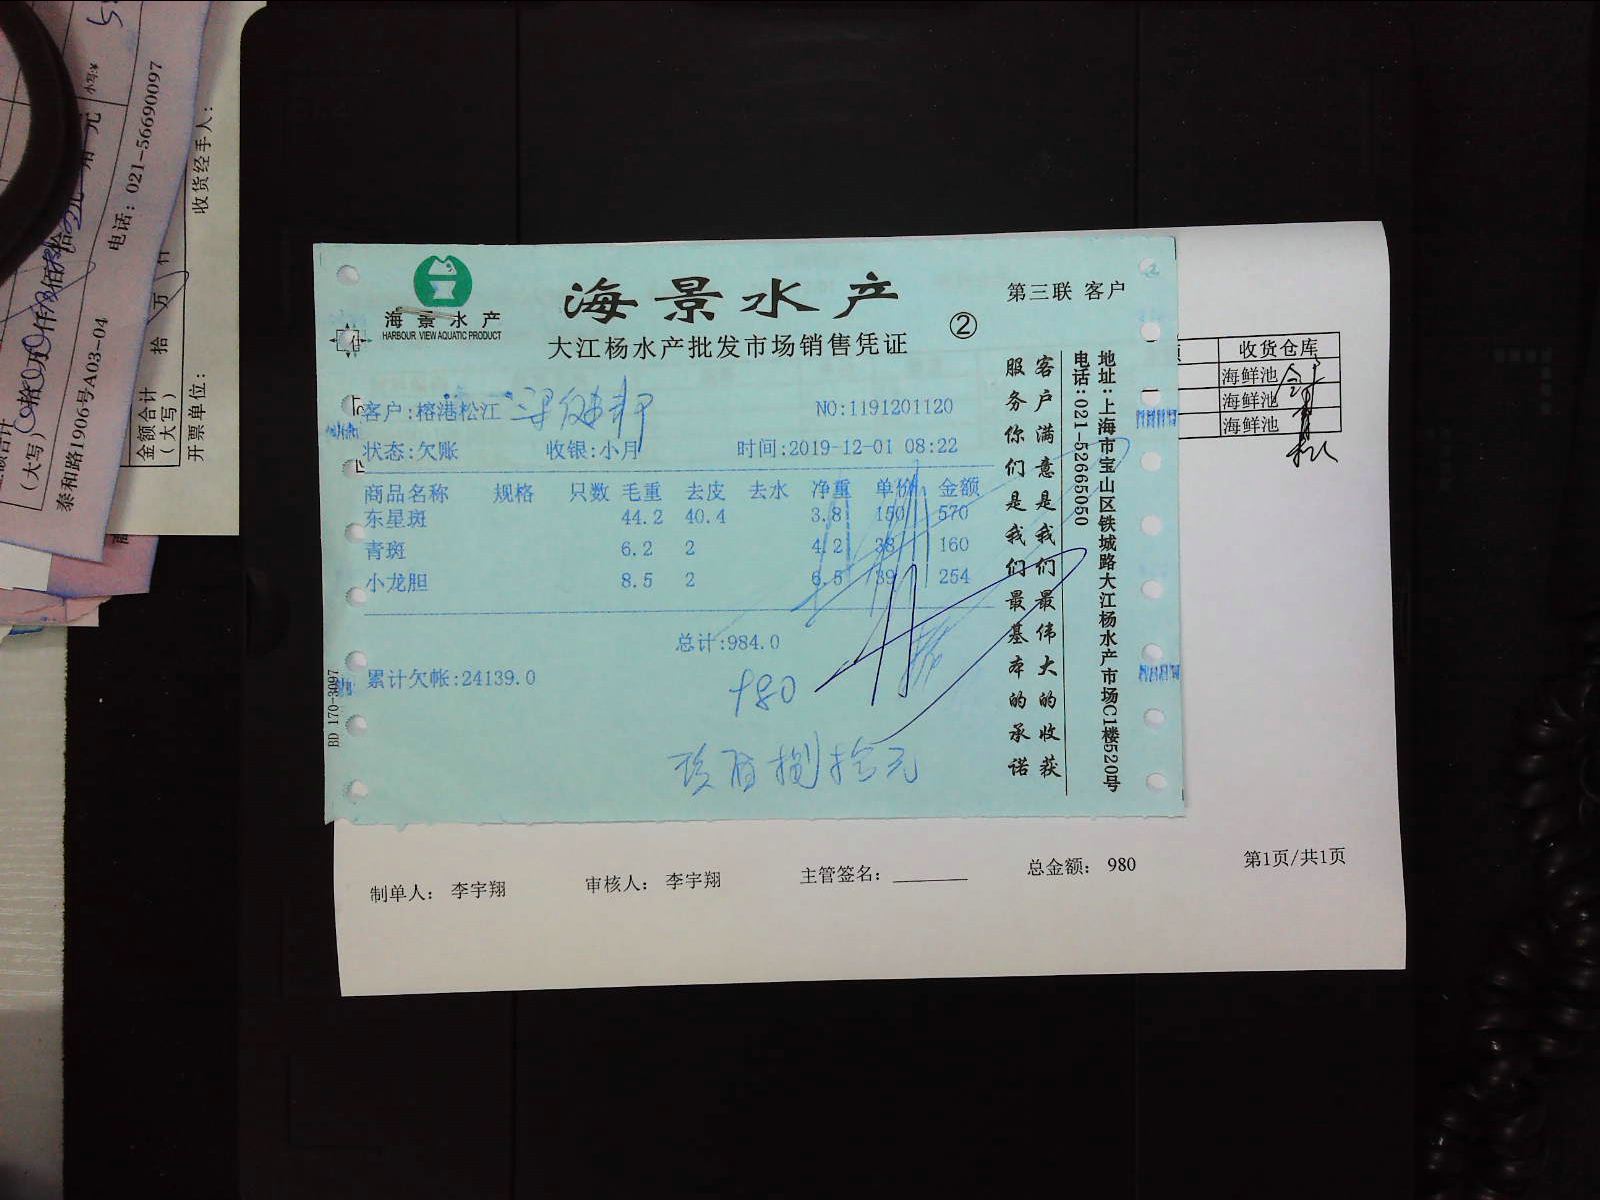 海景水产
HARBOUR VIEW AQUATIC PRODUCT
海景水产
大江杨水产批发市场销售凭证
②
第三联 客户
客户:榕港松江
NO:1191201120
状态:欠账 收银:小月 时间:2019-12-01 08:22
商品名称 规格 只数 毛重 去皮 去水 净重 单价 金额
东星斑 44.2 40.4 3.8 150 570
青斑 6.2 2 4.2 38 160
小龙胆 8.5 2 6.5 39 254
总计:984.0
累计欠帐:24139.0
980
玖佰捌拾元
BD 170-3097
客户满意是我们最伟大的收获
服务你们是我们最基本的承诺
地址:上海市宝山区铁城路大江杨水产市场C1楼520号
电话:021-52665050
收货仓库
海鲜池
海鲜池
海鲜池
制单人: 李宇翔 审核人: 李宇翔 主管签名: 总金额: 980 第1页/共1页
电话: 021-56690097
泰和路1906号A03-04
(大写)
金额合计
(大写)
拾 万
开票单位:
收货经手人: